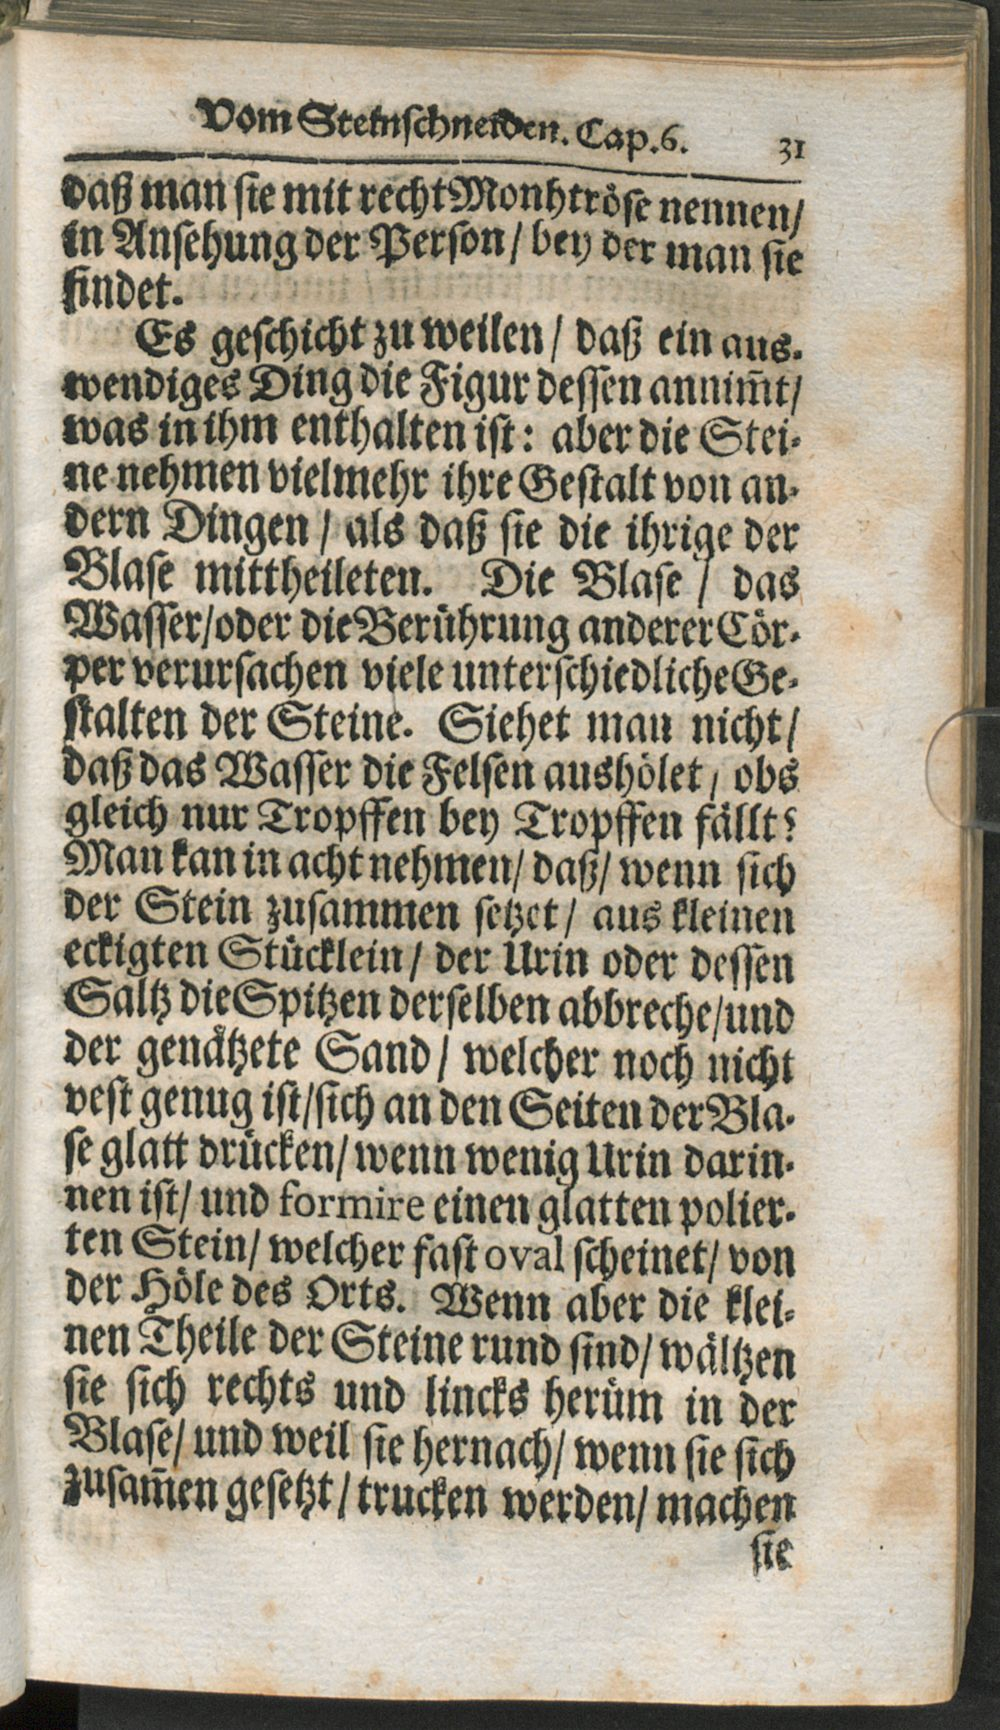 Vom Steinschneiden. Cap. 6. 31
daß man sie mit recht Monhtröse nennen/
in Ansehung der Person/ bey der man sie
findet.
Es geschicht zu weilen/ daß ein aus-
wendiges Ding die Figur dessen annim̃t/
was in ihm enthalten ist: aber die Stei-
ne nehmen vielmehr ihre Gestalt von an-
dern Dingen/ als daß sie die ihrige der
Blase mittheileten. Die Blase/ das
Wasser/ oder die Berührung anderer Cör-
per verursachen viele unterschiedliche Ge-
stalten der Steine. Siehet man nicht/
daß das Wasser die Felsen aushölet/ obs
gleich nur Tropffen bey Tropffen fällt?
Man kan in acht nehmen/ daß/ wenn sich
der Stein zusammen setzet/ aus kleinen
eckigten Stücklein/ der Urin oder dessen
Saltz die Spitzen derselben abbreche/ und
der genätzete Sand/ welcher noch nicht
vest genug ist/ sich an den Seiten der Bla-
se glatt drücken/ wenn wenig Urin darin-
nen ist/ und formire einen glatten polier-
ten Stein/ welcher fast oval scheinet/ von
der Höle des Orts. Wenn aber die klei-
nen Theile der Steine rund sind/ wältzen
sie sich rechts und lincks herüm in der
Blase/ und weil sie hernach/ wenn sie sich
zusam̃en gesetzt/ trucken werden/ machen
sie